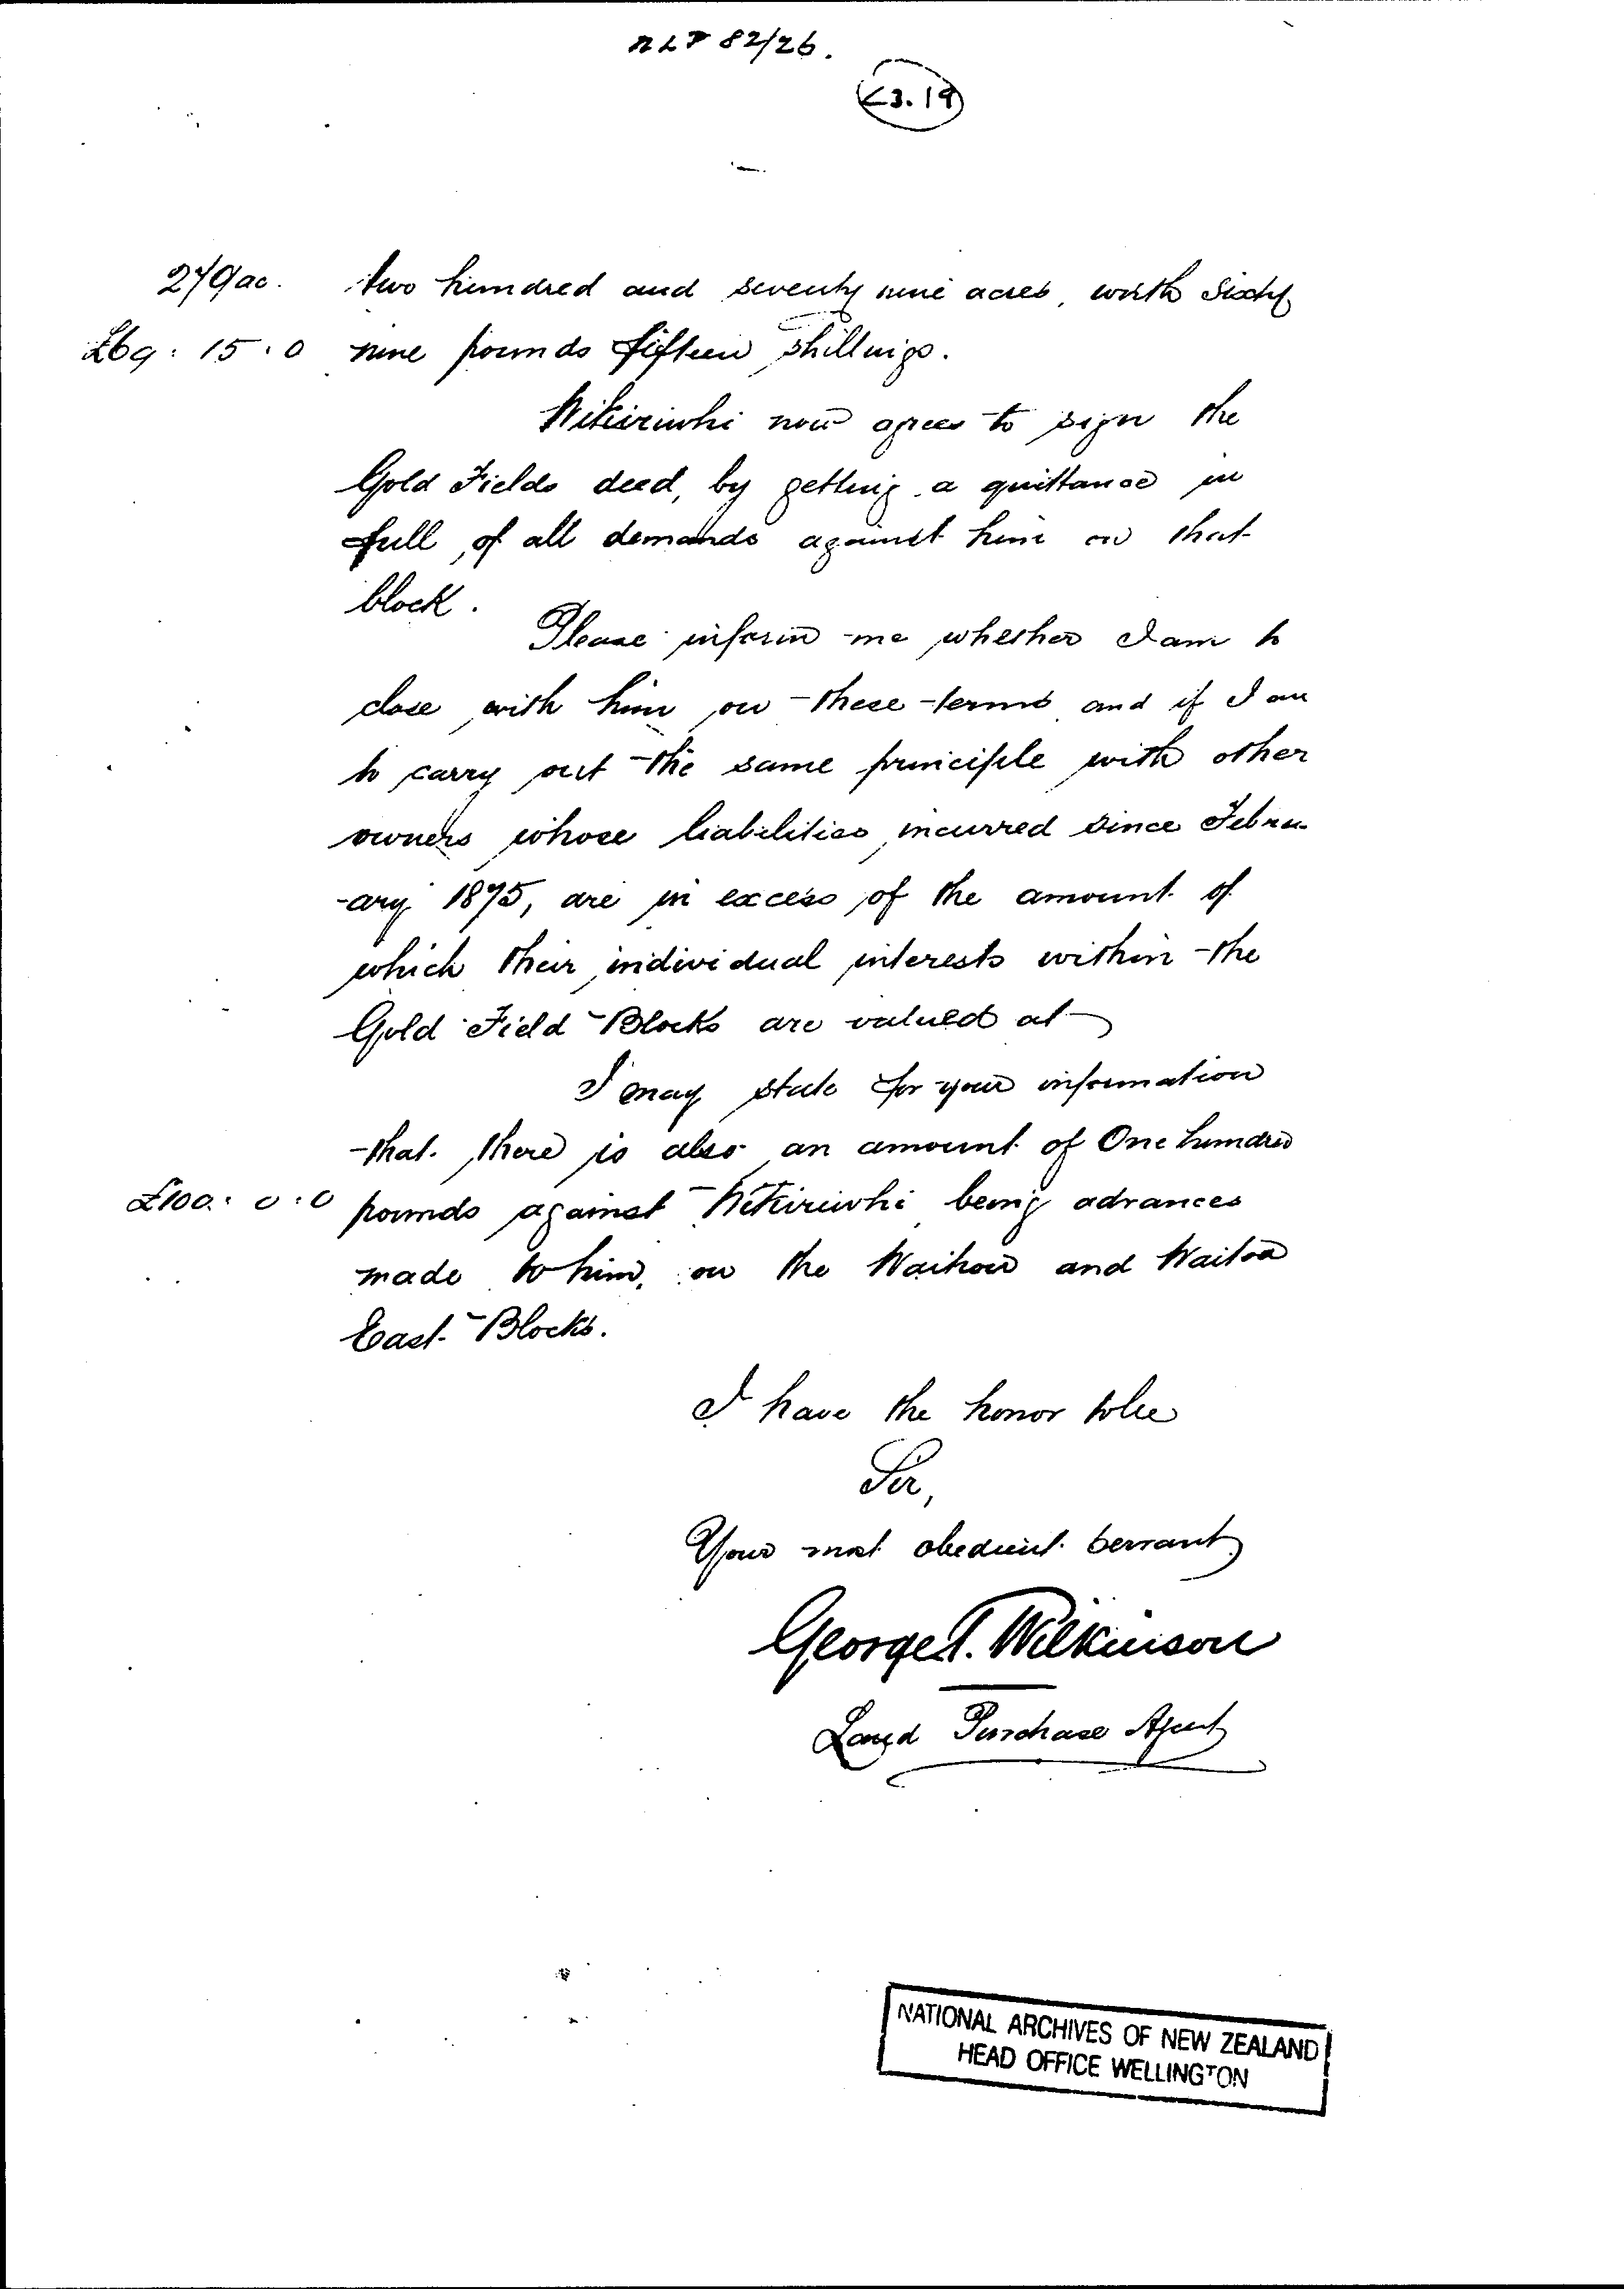 NLP 82/26.
<3.19
279 ac. two hundred and seventy nine acres, worth sixty
£69 : 15 . 0 nine pounds fifteen shillings.
Wikiriwhi now agrees to sign the
Gold Fields deed, by getting a quittance in
full, of all demands against him on that
block.
Please inform me whether I am to
close with him on these terms and if I am
to carry out the same principle with other
owners whose liabilities, incurred since Febru-
-ary 1875, are in excess of the amount of
which their individual interests within the
Gold Field Blocks are valued at
I may state for your information
that there is also an amount of One hundred
£100 : 0 : 0 pounds against Wikiriwhi being advances
made to him, on the Waihou and Waitoa
East Blocks.
I have the honor to be
Sir,
Your most obedient servant
George T. Wilkinson
Land Purchase Agent
NATIONAL ARCHIVES OF NEW ZEALAND
HEAD OFFICE WELLINGTON